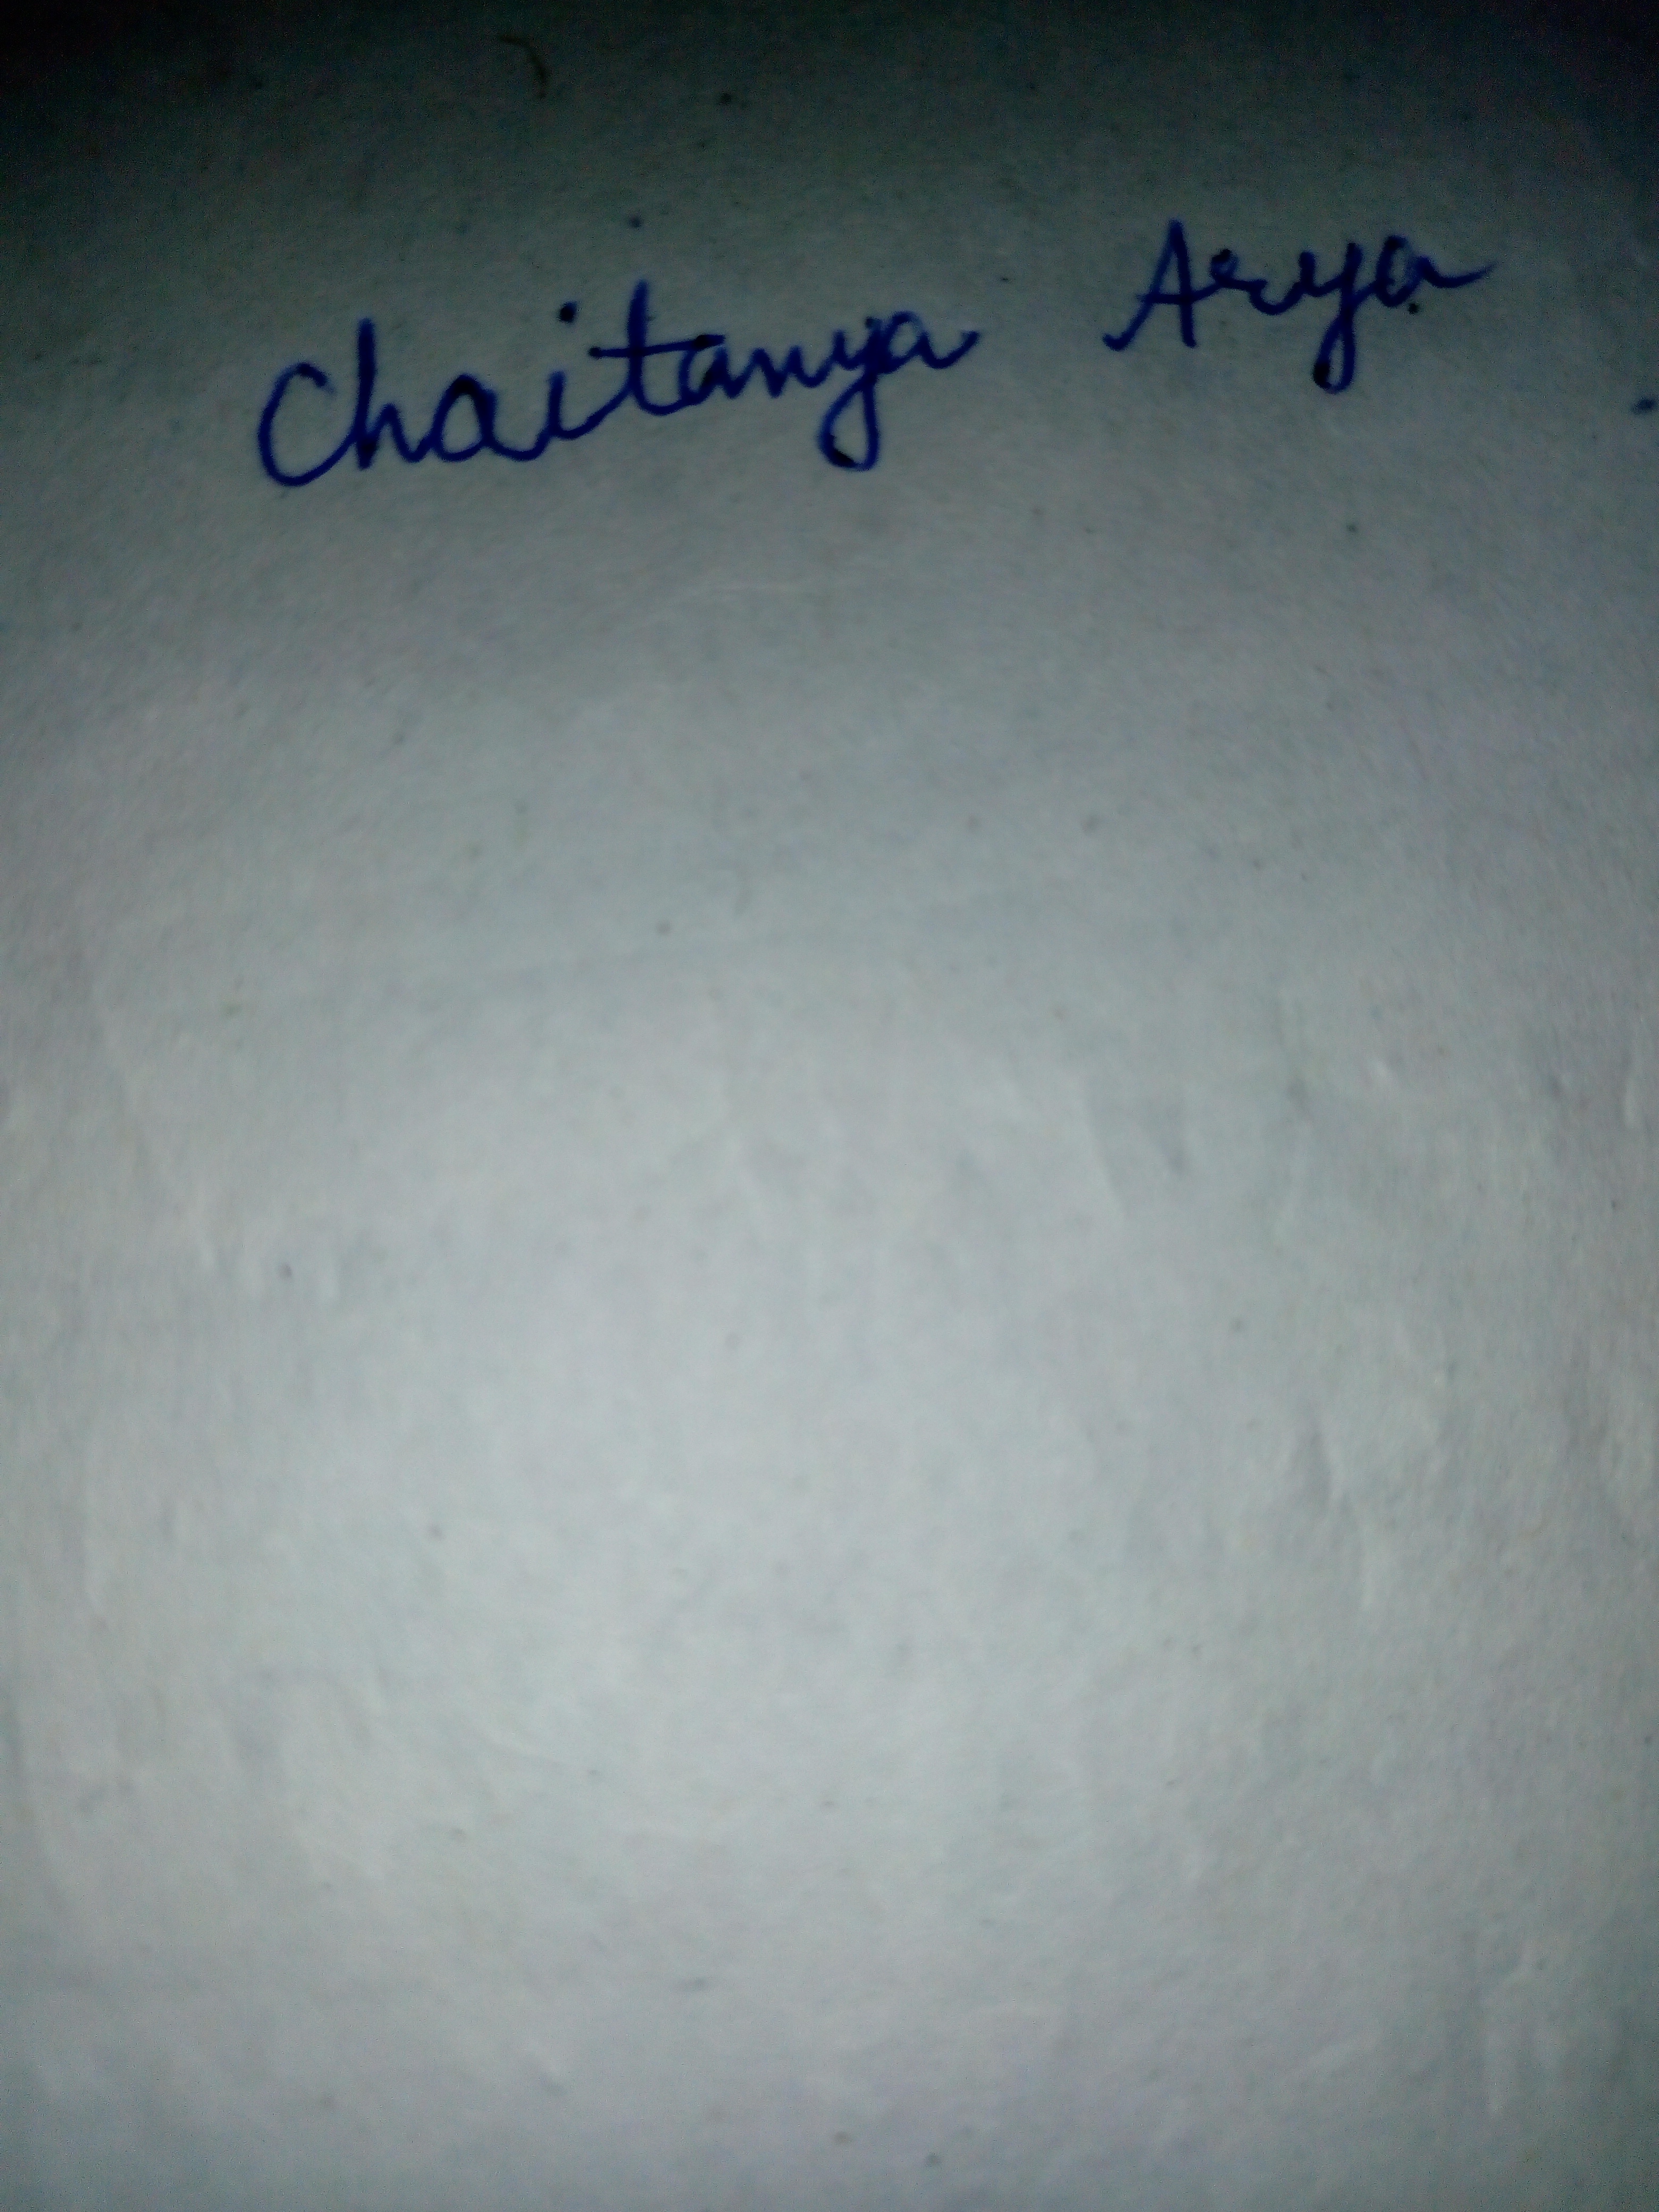 Chaitanya Arya